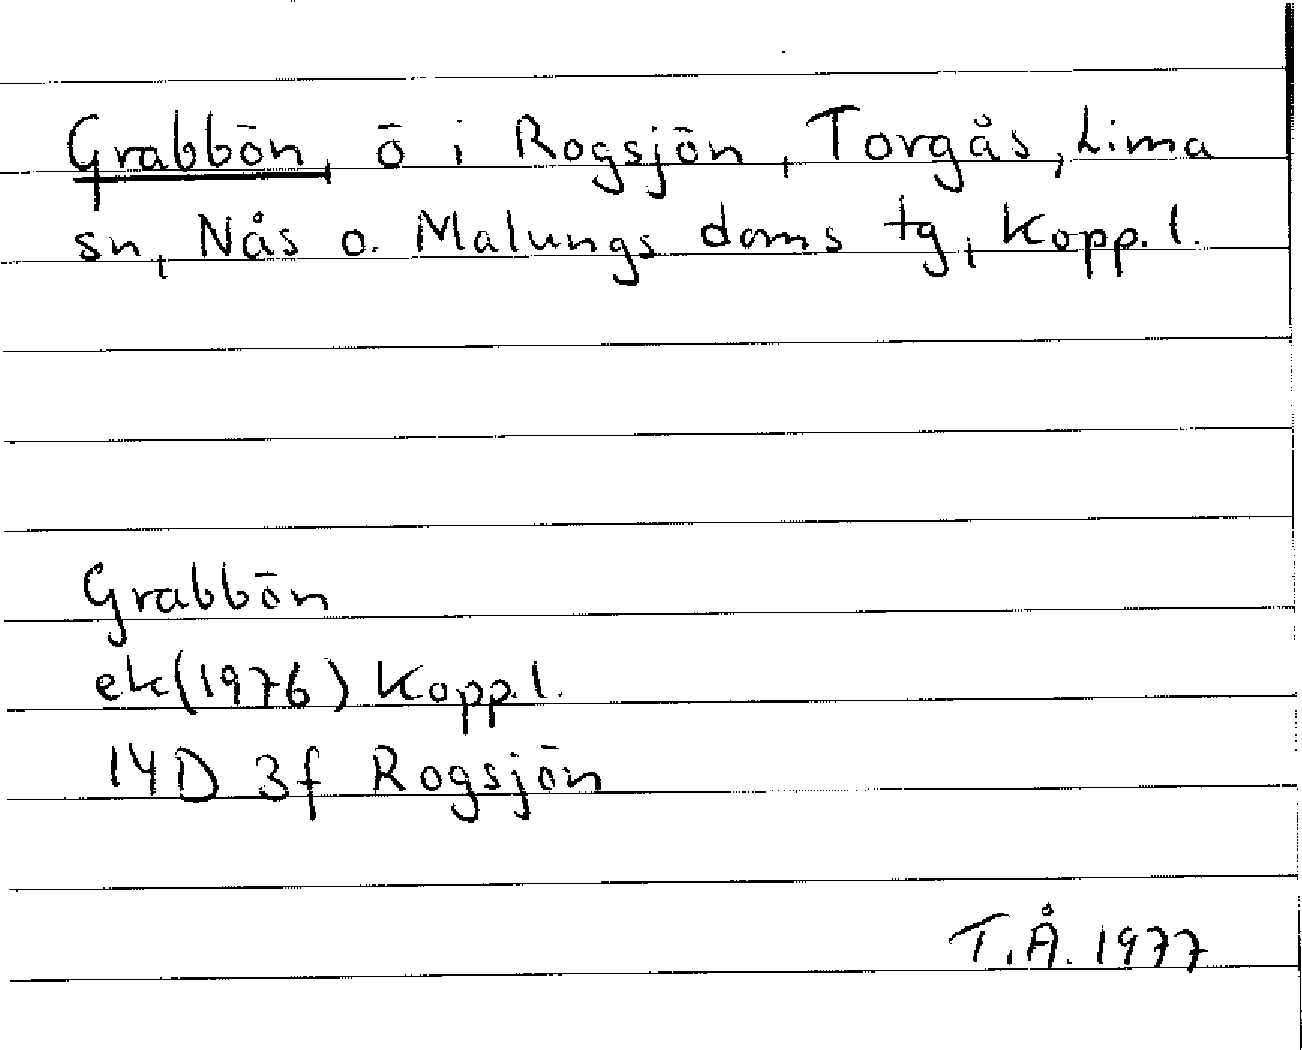 Grabbön, ö i Rogsjön, Torgås, Lima
sn, Nås o. Malungs doms tg, Kopp. l.
Grabbön
ek(1976) Kopp.l.
14D 3f Rogsjön
T.Å. 1977